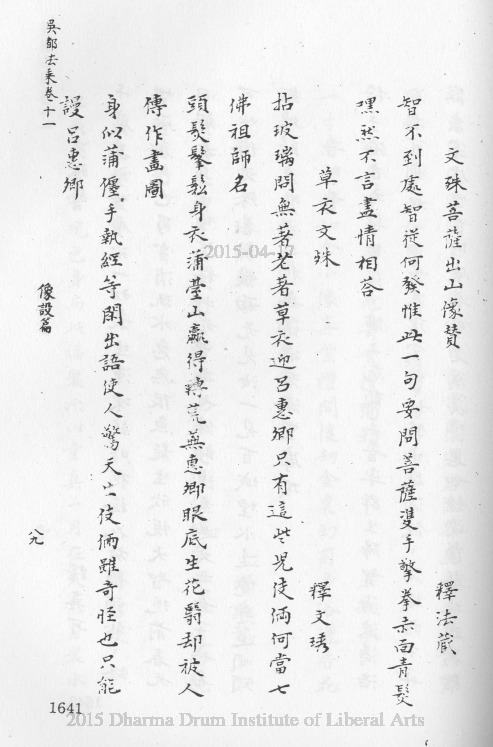 文殊菩薩出山像贊
釋法藏
智不到處智從何發惟此一句要問菩薩雙手擎拳赤面青髮
嘿然不言盡情相荅
草衣文殊
釋文琇
拈玻璃問無著老著草衣迎呂惠卿只有這些兒伎倆何當七
佛祖師名
頭髮鬅鬆身衣蒲臺山贏得轉荒蕪惠卿眼底生花翳却被人
傳作畫圖
身似蒲僵手執經等閑出語使人驚天士伎倆雖奇怪也只能
謾呂惠卿
吳都法乘卷十一
像設篇
八九
1641
2015-04-17
2015 Dharma Drum Institute of Liberal Arts